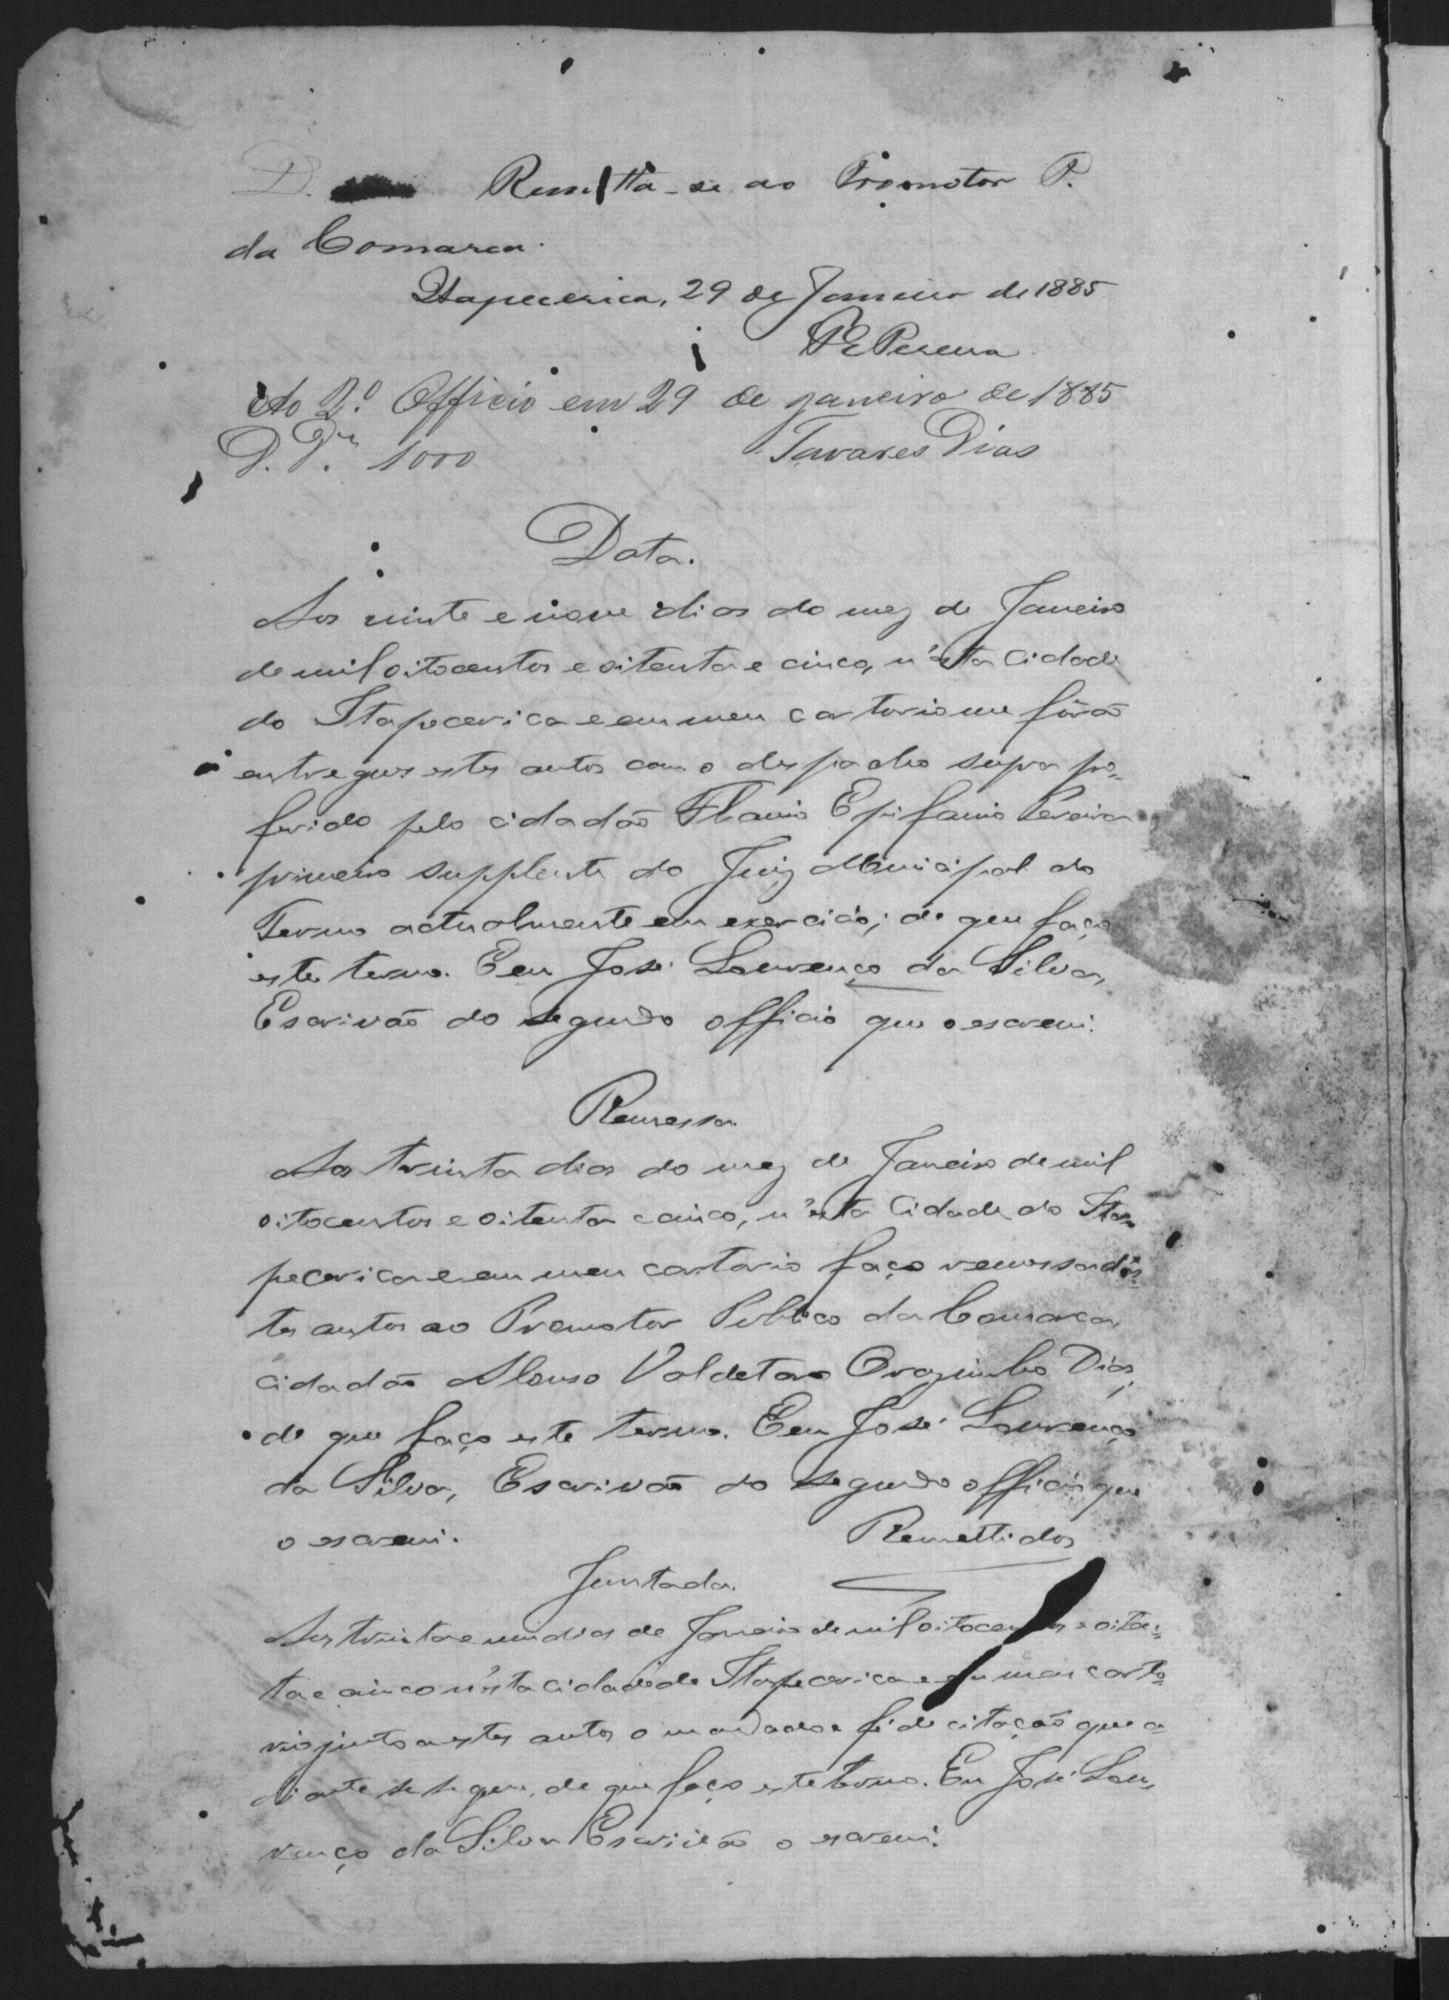 D. Remetta-se ao Promotor P.
da Comarca.
Itapecerica, 29 de Janeiro de 1885
F E Pereira
Ao 2.º Officio em 29 de janeiro de 1885
D. P.ª 1000 Tavares Dias
Data.
Aos vinte e nove dias do mez de Janeiro
de mil oitocentos e oitenta e cinco, n'esta Cidade
do Itapecerica e em meu cartorio me fôrão
entregues estes autos com o despacho supra pro-
ferido pelo cidadão Flavio Epifanio Pereira
primeiro supplente do Juiz Municipal do
Termo actualmente em exercicio; de que faço
este termo. Eeu José Lourenço da Silva,
Escrivão do segundo officio que o escrevi.
Remessa
Aos trinta dias do mez de Janeiro de mil
oitocentos e oitenta e cinco, n'esta Cidade do Ita-
pecerica e em meu cartorio faço remessa d'es-
tes autos ao Promotor Publico da Comarca,
cidadão Alonso Valdetaro Dias,
de que faço este termo. Eeu José Lourenço
da Silva, Escrivão do segundo officio que
o escrevi. Remettidos
Juntada.
Aos trinta e um dias de Janeiro de mil oitocentos e oiten-
ta e cinco n'esta cidade de Itapecerica e em meu carto-
rio junto a estes autos o mandado e fé de citação que a-
diante se segue, de que faço este termo. Eu José Lou-
renço da Silva Escrivão o escrevi.